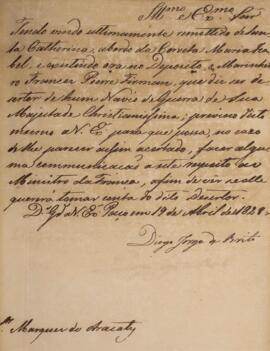 Illmo. e Exmo. Snr.
Tendo vindo ultimamente remettido de San-
ta Catherina, abordo da Corveta Maria Iza-
bel, e existindo ora no Deposito, o Marinhei-
ro Francez Pierre Firman, que diz ser de-
sertor de hum Navio de Guerra de Sua
Majestade Christianissima; previno disto
mesmo a V. Exa. para que possa, no caso
de lhe parecer assim acertado, fazer algu-
ma communicação a este respeito ao
Ministro da França, afim de ver se elle
quererá tomar conta do dito Desertor.
Ds. Gde. a V. Exa. Paço em 19 de Abril de 1828.
Diogo Jorge de Brito
Sr. Marquez do Aracaty